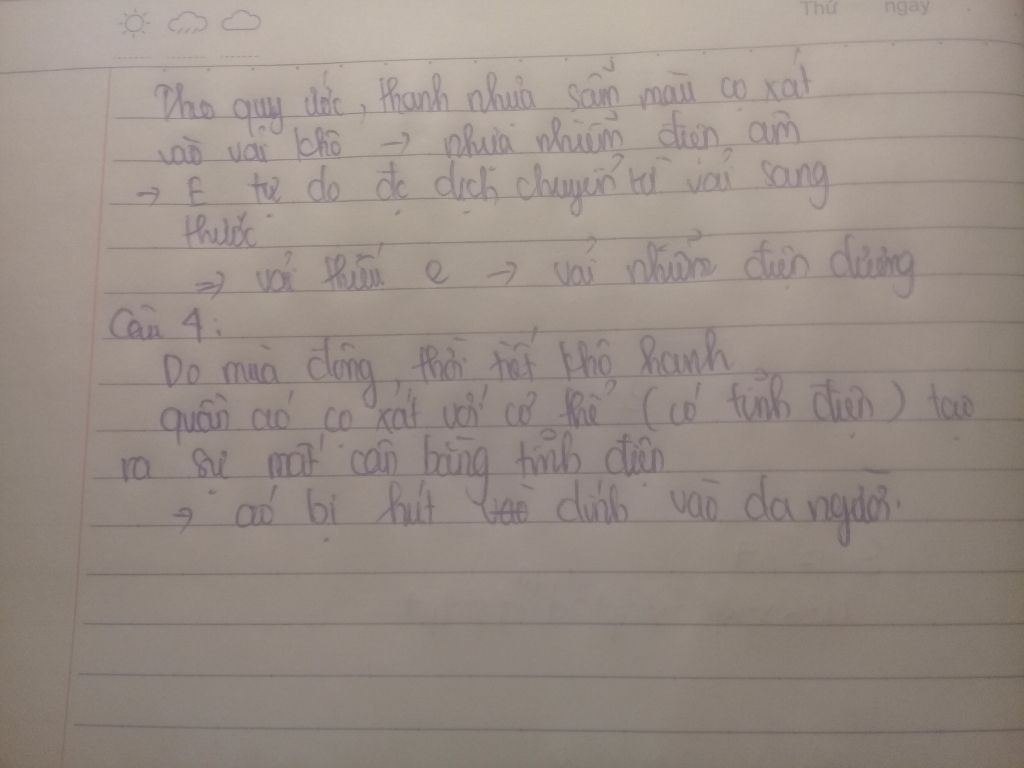 Thứ ngày
Theo quy ước, thanh nhựa sẫm màu cọ xát
vào vải khô → nhựa nhiễm điện âm
→ E tự do đc dịch chuyển từ vải sang
thước
⇒ vải thiếu e → vải nhiễm điện dương
Câu 4:
Do mùa đông, thời tiết khô hanh
quần áo cọ xát với cơ thể (có tĩnh điện) tạo
ra sự mất cân bằng tĩnh điện
→ áo bị hút vào dính vào da người.